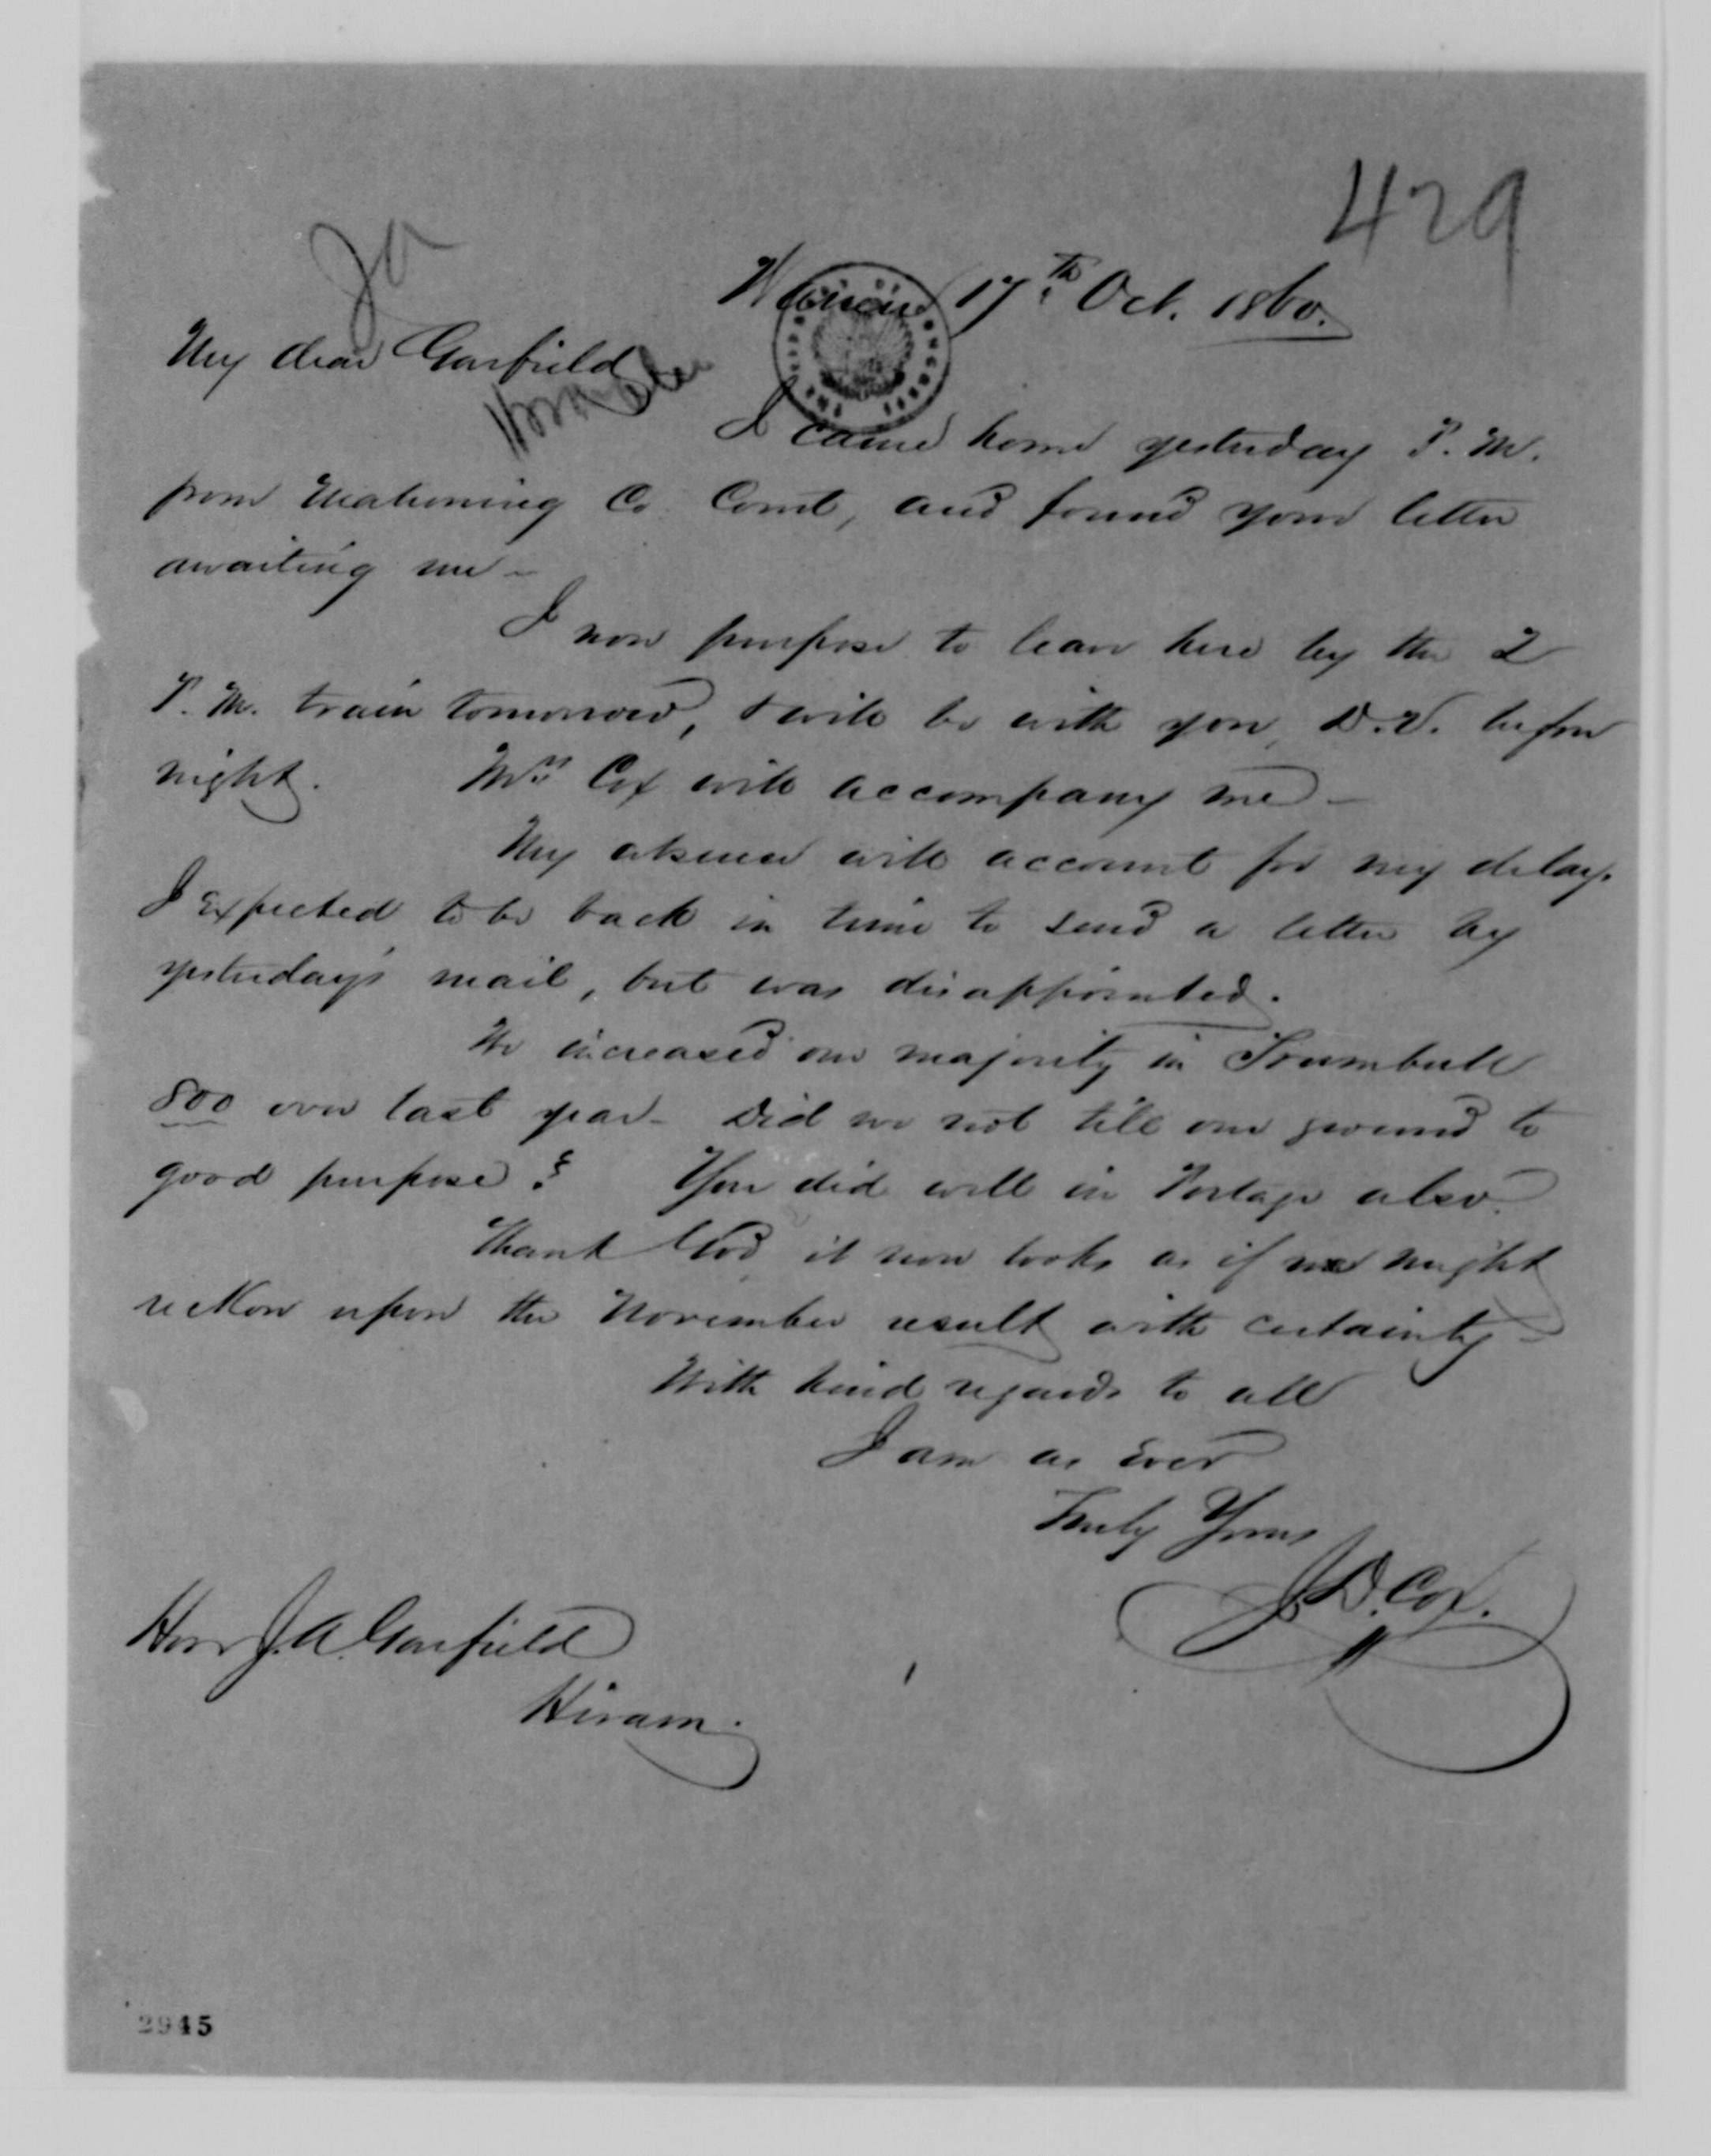 429
Ja
Warren 17th Oct. 1860.
My dear Garfield
I came home yesterday P. M.
from Mahoning Co. Court, and found your letter
awaiting me -
I now purpose to leave here by the 2
P. M. train tomorrow, & will be with you, D.V. before
night. Mrs Cox will accompany me -
My absence will account for my delay.
I expected to be back in time to send a letter by
yesterday's mail, but was disappointed.
We increased our majority in Trumbull
800 over last year - Did we not till our ground to
good purpose? You did well in Portage also.
Thank God, it now looks as if we might
reckon upon the November result with certainty -
With kind regards to all
I am as ever
Truly Yours
J. D. Cox.
Hon J. A. Garfield
Hiram.
2945